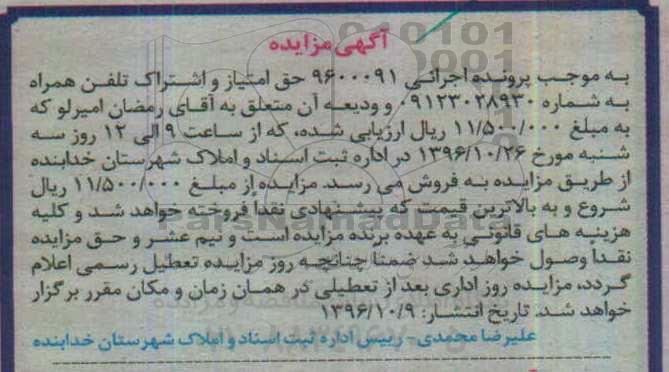 آگهی مزایده
به موجب پرونده اجرائی ۹۶۰۰۰۹۱ حق امتیاز و اشتراک تلفن همراه
به شماره ۰۹۱۲۳۰۲۸۹۳۰ و ودیعه آن متعلق به آقای رمضان امیرلو که
به مبلغ ۱۱/۵۰۰/۰۰۰ ریال ارزیابی شده، که از ساعت ۹ الی ۱۲ روز سه
شنبه مورخ ۱۳۹۶/۱۰/۲۶ در اداره ثبت اسناد و املاک شهرستان خدابنده
از طریق مزایده به فروش می رسد. مزایده از مبلغ ۱۱/۵۰۰/۰۰۰ ریال
شروع و به بالاترین قیمت که پیشنهادی نقداً فروخته خواهد شد و کلیه
هزینه های قانونی به عهده برنده مزایده است و نیم عشر و حق مزایده
نقداً وصول خواهد شد ضمناً چنانچه روز مزایده تعطیل رسمی اعلام
گردد، مزایده روز اداری بعد از تعطیلی در همان زمان و مکان مقرر برگزار
خواهد شد. تاریخ انتشار: ۱۳۹۶/۱۰/۹
علیرضا محمدی - رییس اداره ثبت اسناد و املاک شهرستان خدابنده
ParsNamadData